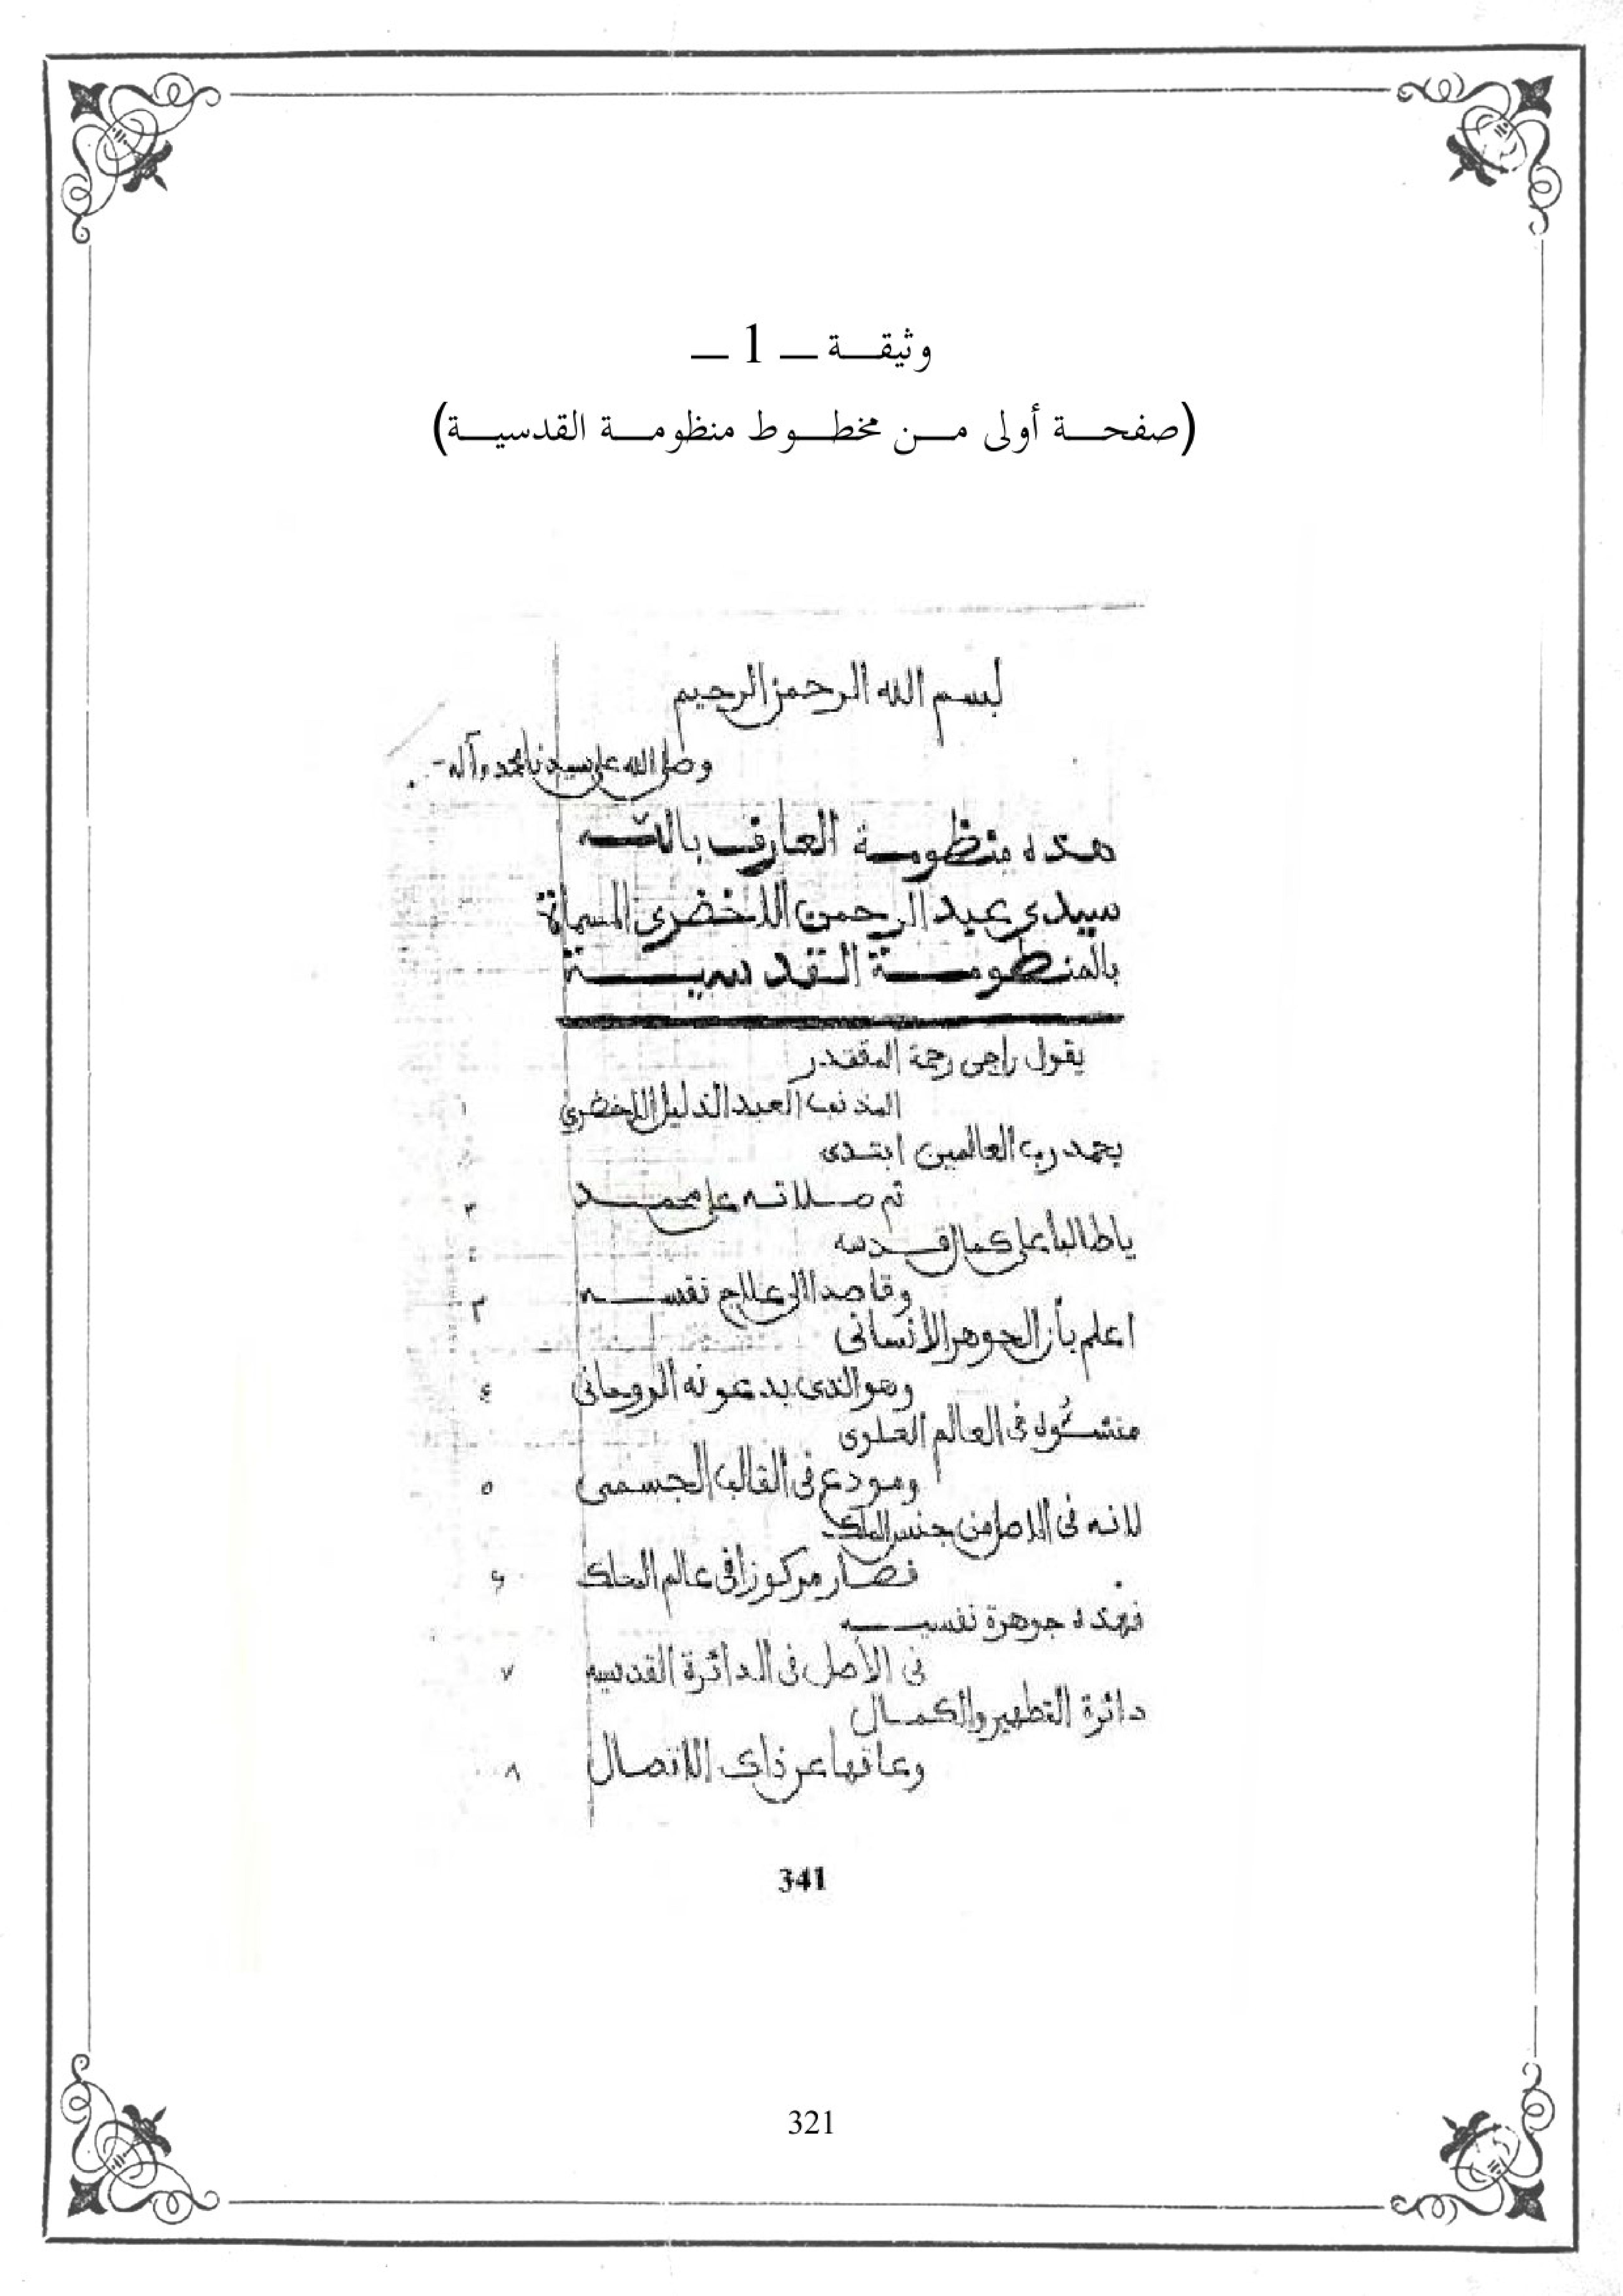 وثيقة – 1 –
(صفحة أولى من مخطوط منظومة القدسية)
بسم الله الرحمن الرحيم
وصلى الله على سيدنا محمد وآله -
هذه منظومة العارف بالله
سيدي عبد الرحمن الاخضري المسماة
بالمنظومة القدسية
يقول راجى رحمة المقتدر
المذنب العبد الذليل الاخضري ١
بحمد رب العالمين ابتدى
ثم صلاته على محمد ٢
ياطالبا على كمال قدسه
وقاصدا الى علاج نفسه ٣
اعلم بأن الجوهر الأنسانى
وهو الذى يدعونه الروحانى ٤
منشؤه فى العالم العلوى
ومودع فى القالب الجسمى ٥
لانه فى الاصل من جنس الملك
فصار مركوزا فى عالم الملك ٦
فهذه جوهرة نفسيه
فى الأصل فى الدائرة القدسيه ٧
دائرة التطهير والكمال
وعاقها عن ذاك الاتصال ٨
341
321